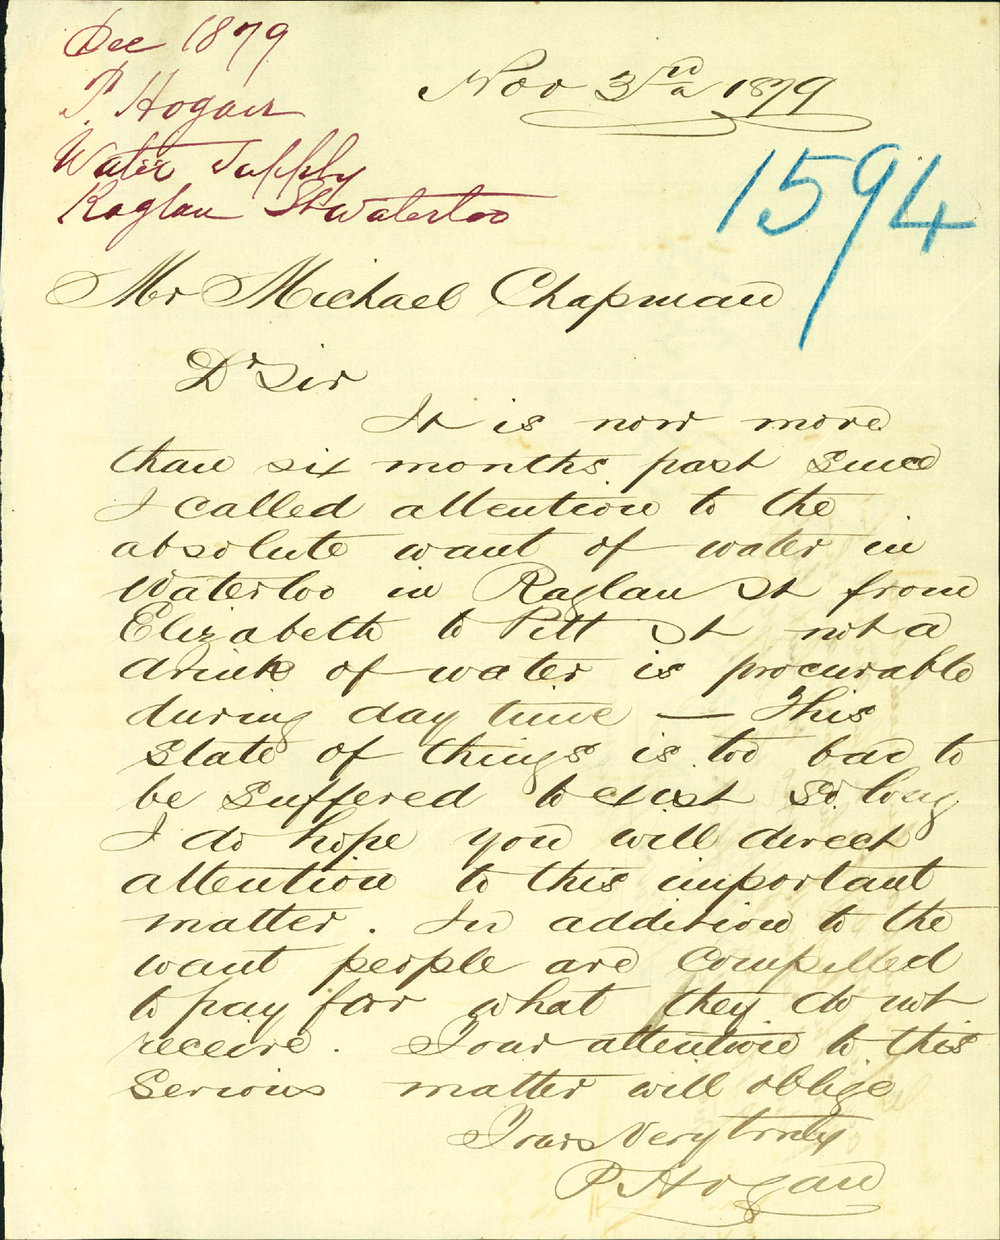 Dec 1879
P Hogan
Water Supply
Raglan St Waterloo
Nov 3rd 1879
1594
Mr Michael Chapman
Dr Sir
It is now more
than six months past since
I called attention to the
absolute want of water in
Waterloo in Raglan St from
Elizabeth to Pitt St not a
drink of water is procurable
during day time — This
state of things is too bad to
be suffered to exist so long
I do hope you will direct
attention to this important
matter. In addition to the
want people are compelled
to pay for what they do not
receive. Your attention to this
serious matter will oblige
Yours very truly
P Hogan